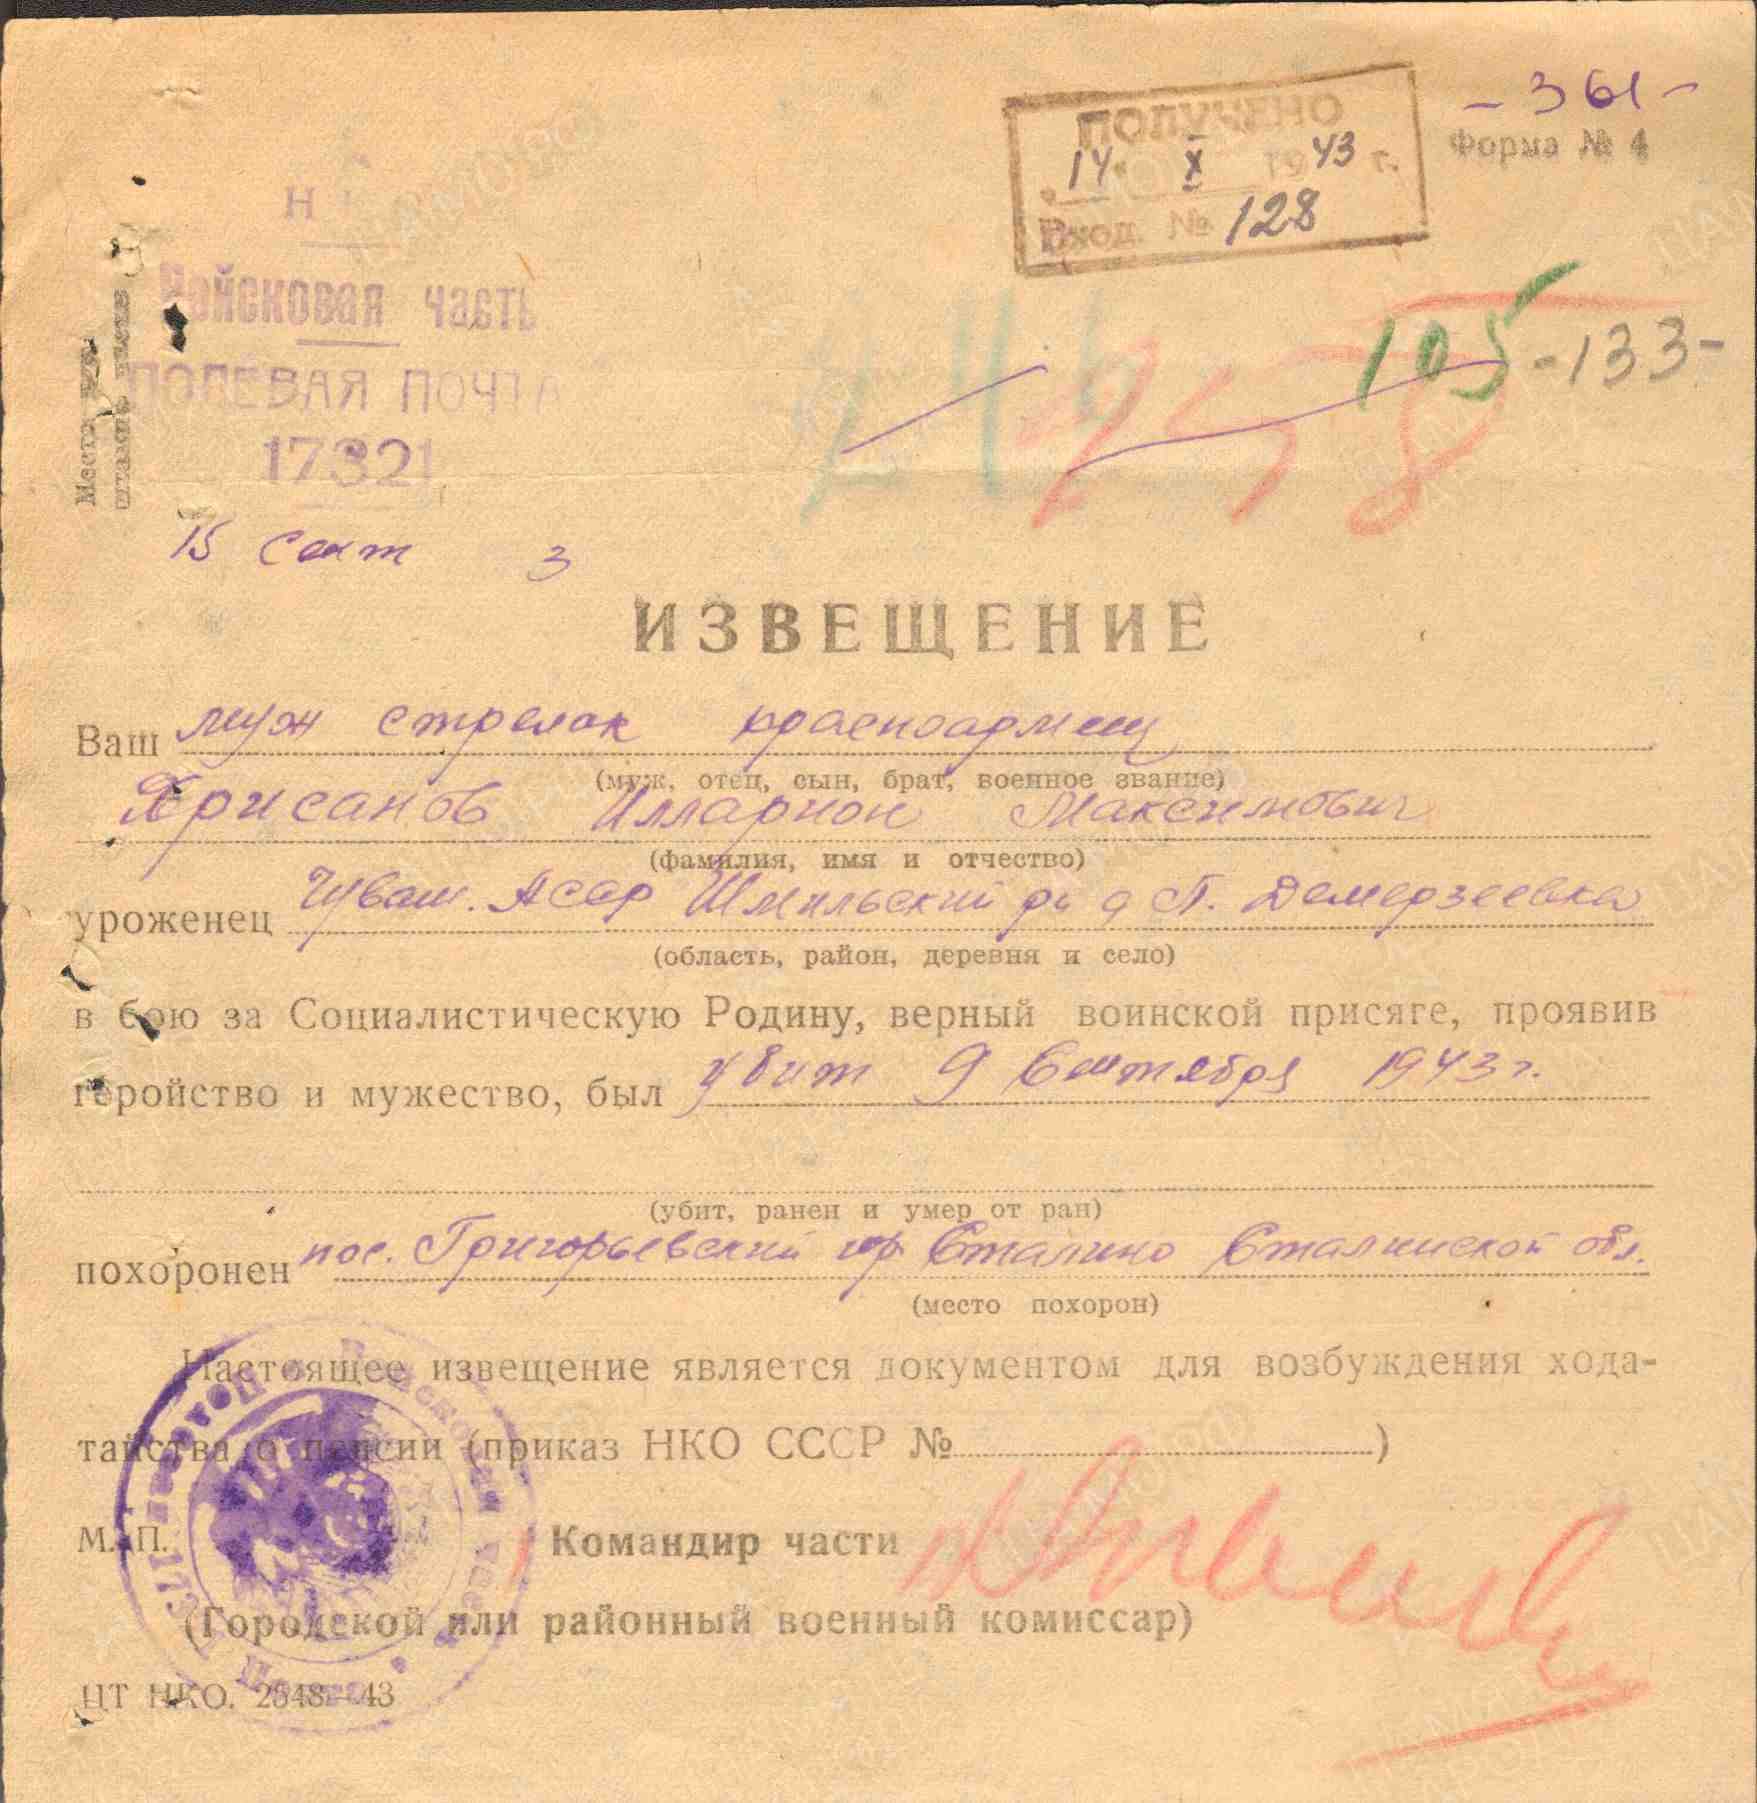 - 361 -
Форма № 4
ПОЛУЧЕНО
"14" X 1943 г.
Вход. № 128
Н
Войсковая часть
ПОЛЕВАЯ ПОЧТА
17321
Место
штамп части
105 -133-
258
15 сент 3
ИЗВЕЩЕНИЕ
Ваш муж стрелок красноармеец
(муж, отец, сын, брат, военное звание)
Хрисанов Илларион Максимович
(фамилия, имя и отчество)
уроженец Чуваш. АССР Шемурш​ский
(область, район, деревня и село)
в бою за Социалистическую Родину, верный воинской присяге, проявив
геройство и мужество, был убит 9 Сентября 1943 г.
(убит, ранен и умер от ран)
похоронен пос. Григорьевский гор Сталино Сталинской обл.
(место похорон)
Настоящее извещение является документом для возбуждения хода-
тайства о пенсии (приказ НКО СССР № )
М. П. Командир части
(Городской или районный военный комиссар)
ЦТ НКО. 2648—43